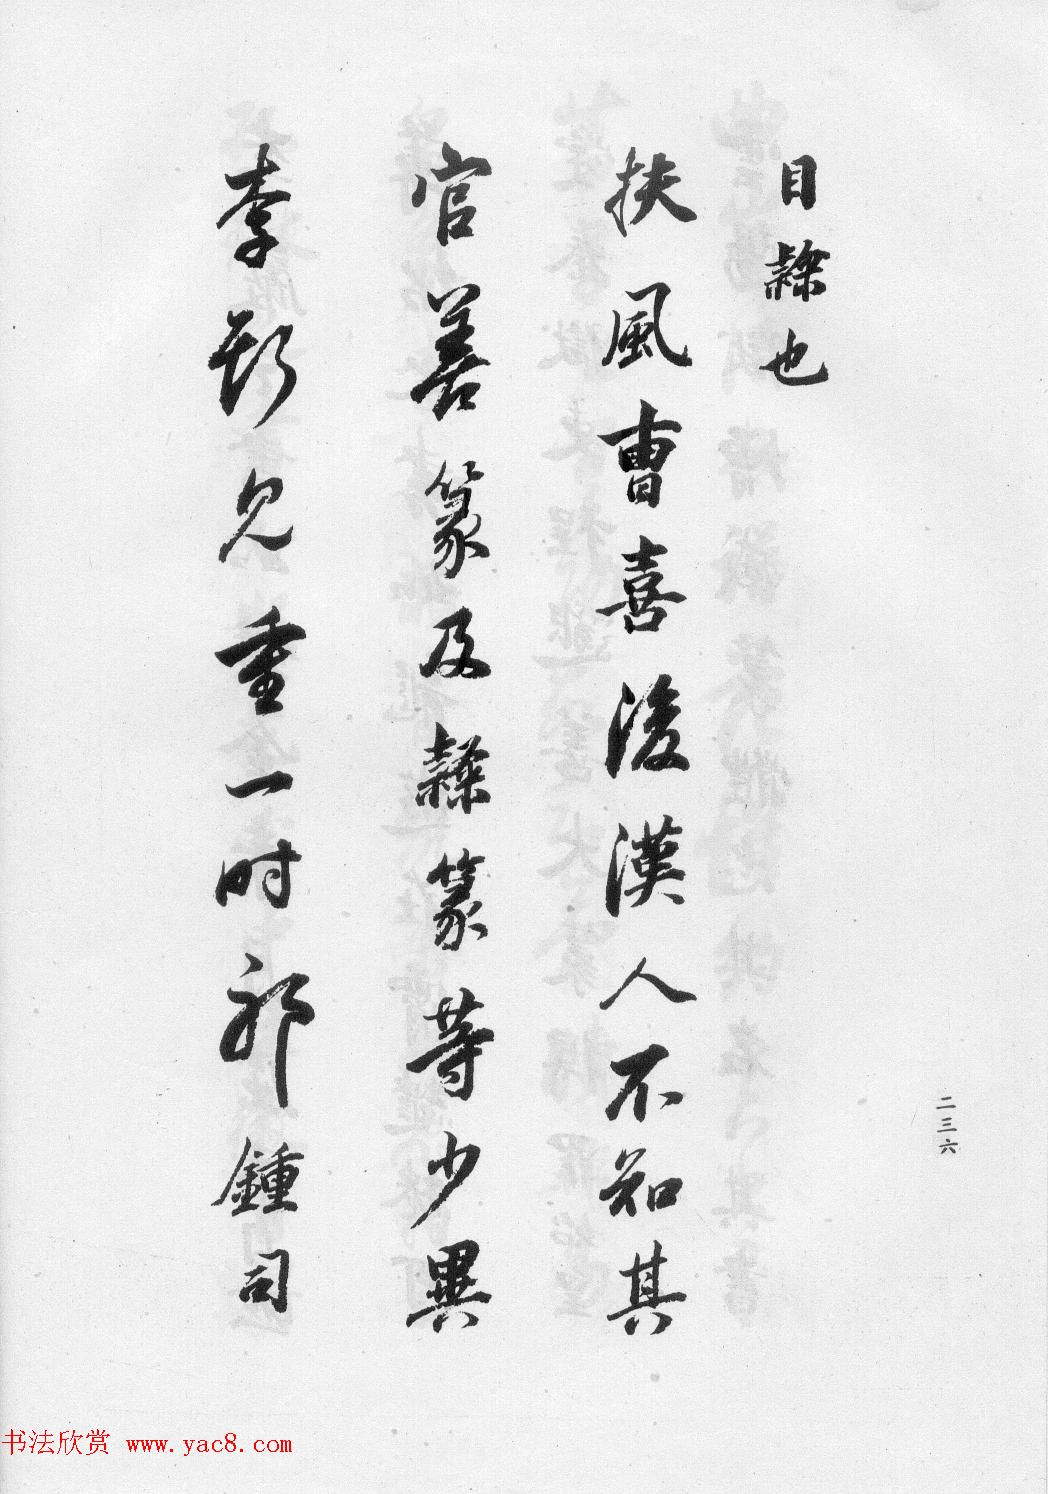 目隸也
扶風曹喜後漢人不知其
官善篆及隸篆等少異
李斯見重一時邪鍾司
二三六
书法欣赏 www.yac8.com